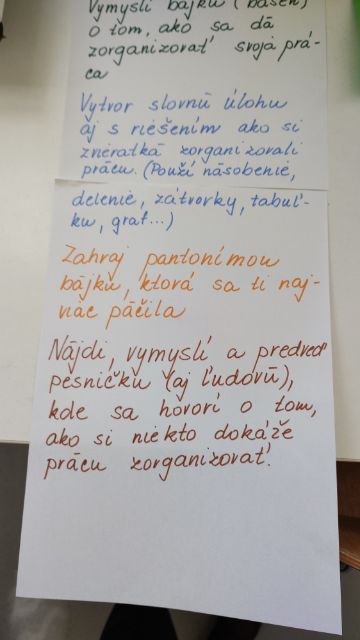 Vymysli bájku (báseň)
o tom, ako sa dá
zorganizovať svoja prá-
ca
Vytvor slovnú úlohu
aj s riešením ako si
zvieratká zorganizovali
prácu. (Použi násobenie,
delenie, zátvorky, tabuľ-
ku, graf...)
Zahraj pantomímou
bájku, ktorá sa ti naj-
viac páčila
Nájdi, vymysli a predveď
pesničku (aj ľudovú),
kde sa hovorí o tom,
ako si niekto dokáže
prácu zorganizovať.